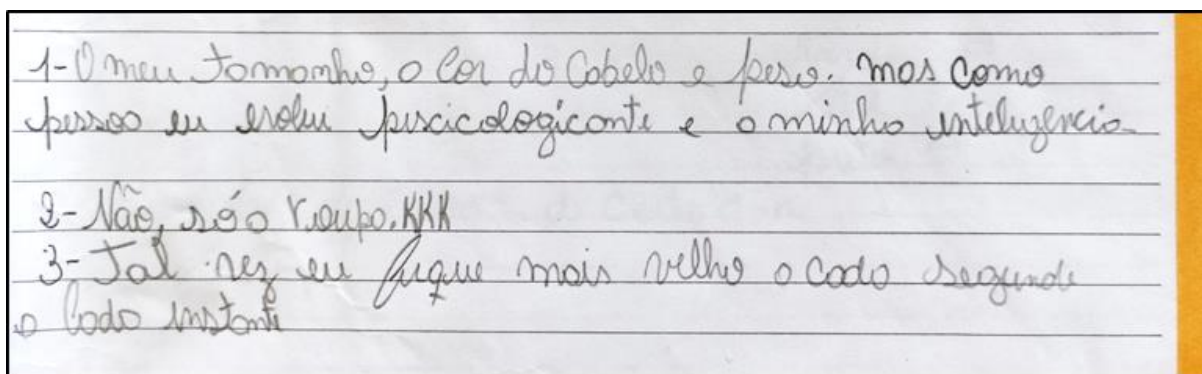 1- O meu tamanho, a cor do Cabelo e peso. mas como
pessoa eu evolui piscicologicante e a minha intelugencia
2- Não, só a roupa. KKK
3- Tal vez eu fique mais velho a cada segundo
a cada instante